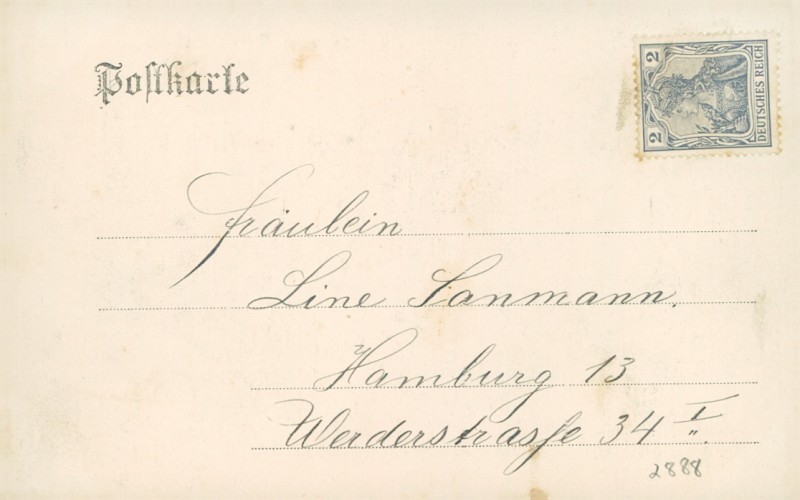 Postkarte
2 2
DEUTSCHES REICH
Fräulein
Line Sanmann.
Hamburg 13
Werderstrasse 34 I.
2888